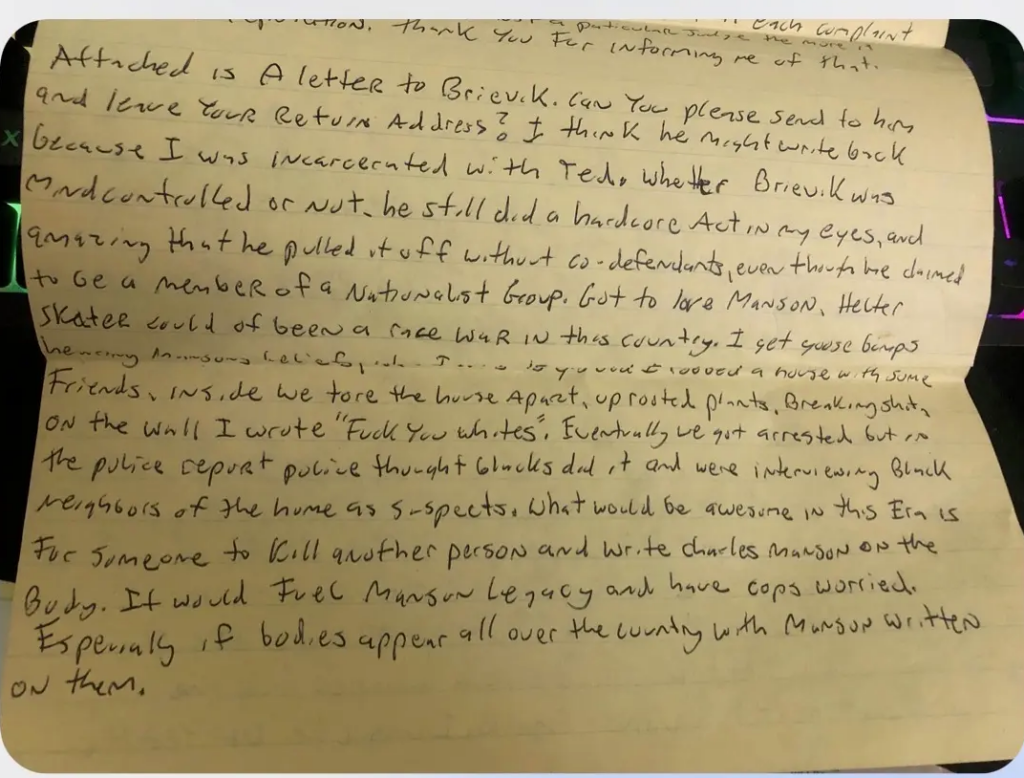 each complaint
particular judge the more is
Thank You For informing me of that.
Attached is A letter to Brievik. Can You please send to him
and leave Your Return Address? I think he might write back
because I was incarcerated with Ted. Whether Brievik was
Mindcontrolled or not, he still did a hardcore Act in my eyes, and
amazing that he pulled it off without co-defendants, even though he claimed
to be a member of a Nationalist Group. Got to love Manson, Helter
Skater could of been a race war in this country. I get goose bumps
hearing a house with some
Friends, inside we tore the house Apart, uprooted plants, Breaking shit,
on the wall I wrote "Fuck You whites". Eventually we got arrested but in
the police report police thought blacks did it and were interviewing Black
neighbors of the home as suspects. What would be awesome in this Era is
For someone to Kill another person and write charles Manson on the
Body. It would Fuel Manson Legacy and have cops worried.
Especially if bodies appear all over the country with Manson written
on them.